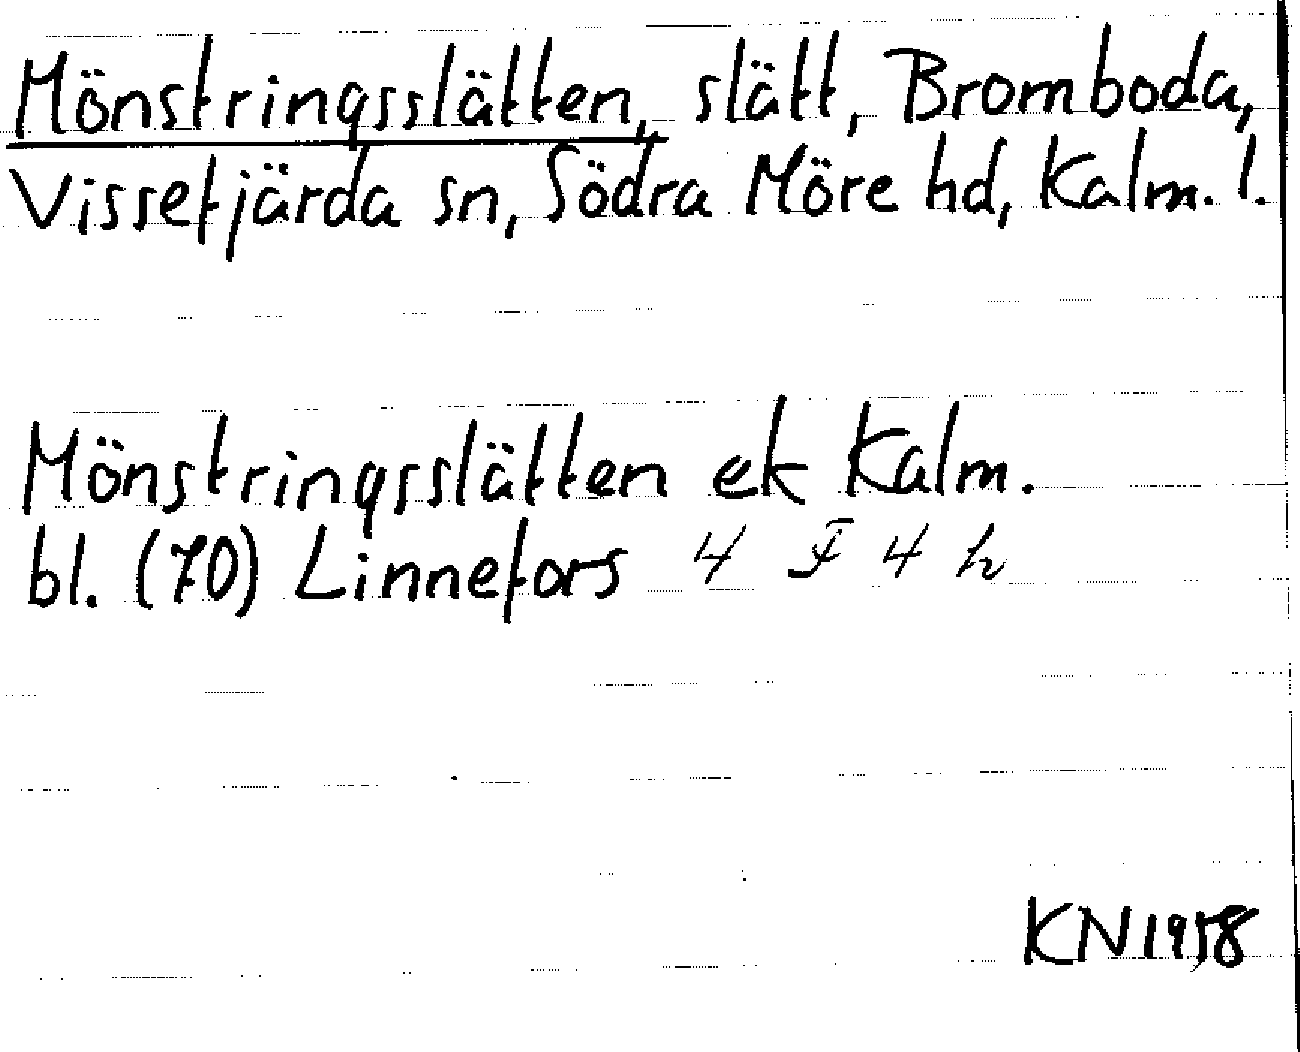 Mönstringsslätten, slätt, Bromboda,
Vissefjärda sn, Södra Möre hd, Kalm. l.
Mönstringsslätten ek Kalm.
bl. (70) Linnefors 4 F 4 h
KN 1958